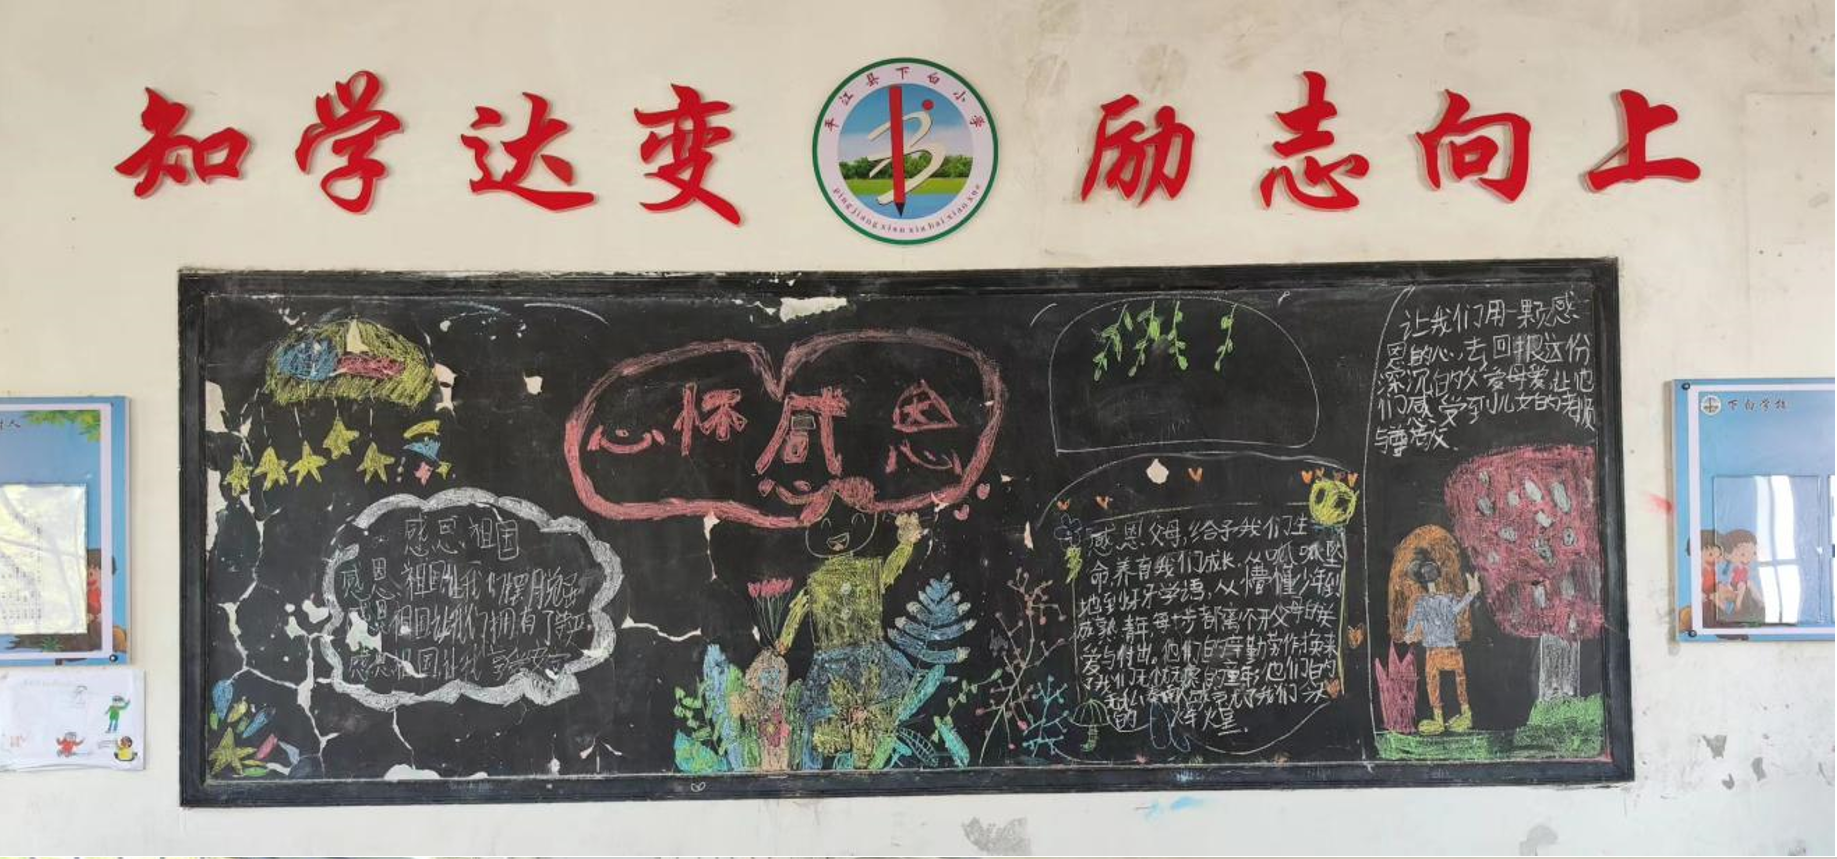 知学达变 励志向上
平江县下白小学
ping jiang xian xia bai xiao xue
心怀感恩
让我们用一颗感
恩的心,去回报这份
深沉的父爱母爱,让他
们感受到儿女的孝顺
与尊敬.
下白学校
感恩祖国
感恩祖国让我们摆脱
感恩祖国让我们拥有了
感恩祖国让我
感恩父母,给予我们生
命,养育我们成长.从呱呱坠
地到牙牙学语,从懵懂少年到
成熟青年,每一步都离不开父母的关
爱与付出。他们的辛勤劳作,换来
了我们无忧无虑的童年;他们的
无私
的火星.